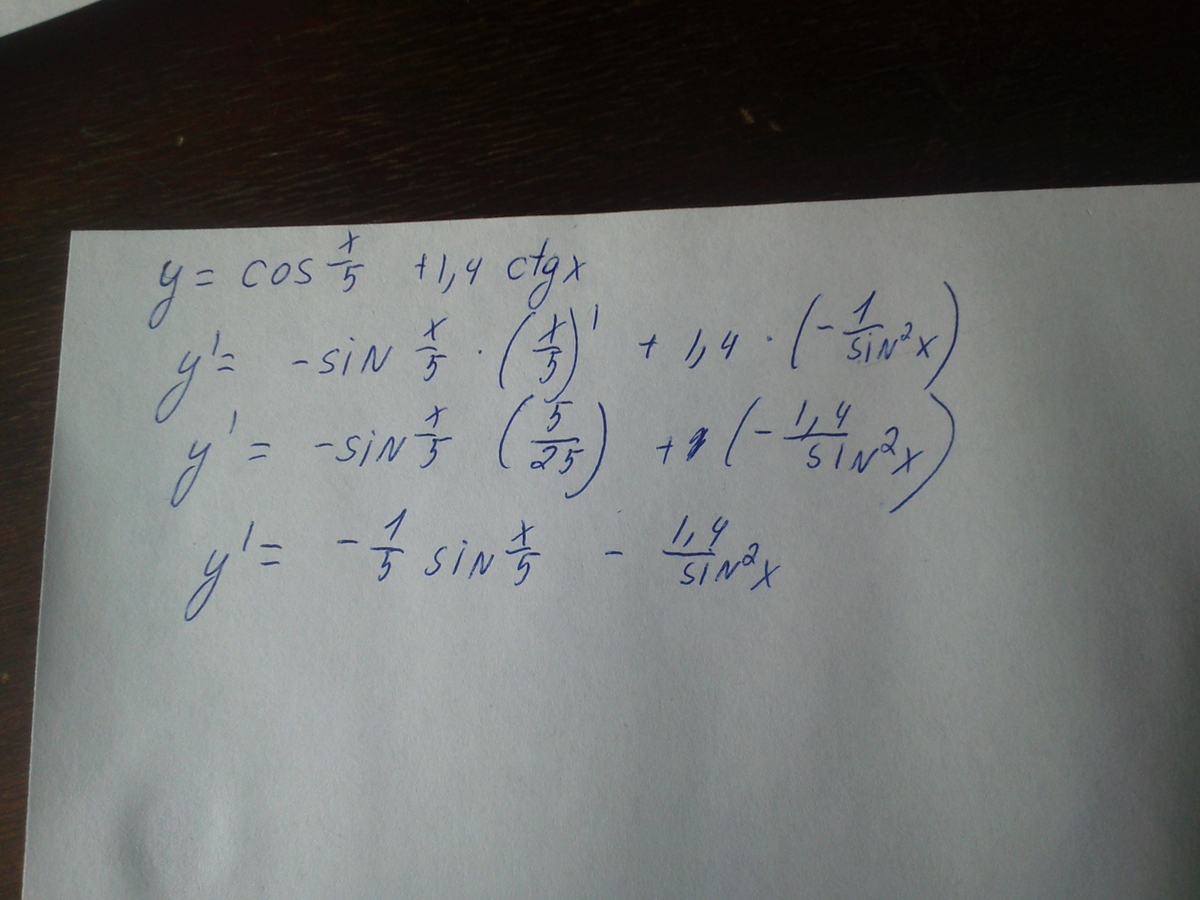 y = cos x/5 +1,4 ctgx
y' = -sin x/5 · (x/5)' + 1,4 · (- 1/sin²x)
y' = -sin x/5 (5/25) + (- 1,4/sin²x)
y' = - 1/5 sin x/5 - 1,4/sin²x